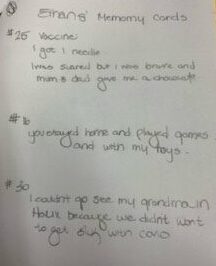 Eirans' Memory Cards
#25 Vaccine
I got 1 needle
I was scared but I was brave and
mum & dad gave me a chocolate
#16
you stayed home and played games
and with my toys.
#30
I couldn't go see my grandma in
because we didn't want
to get sick with